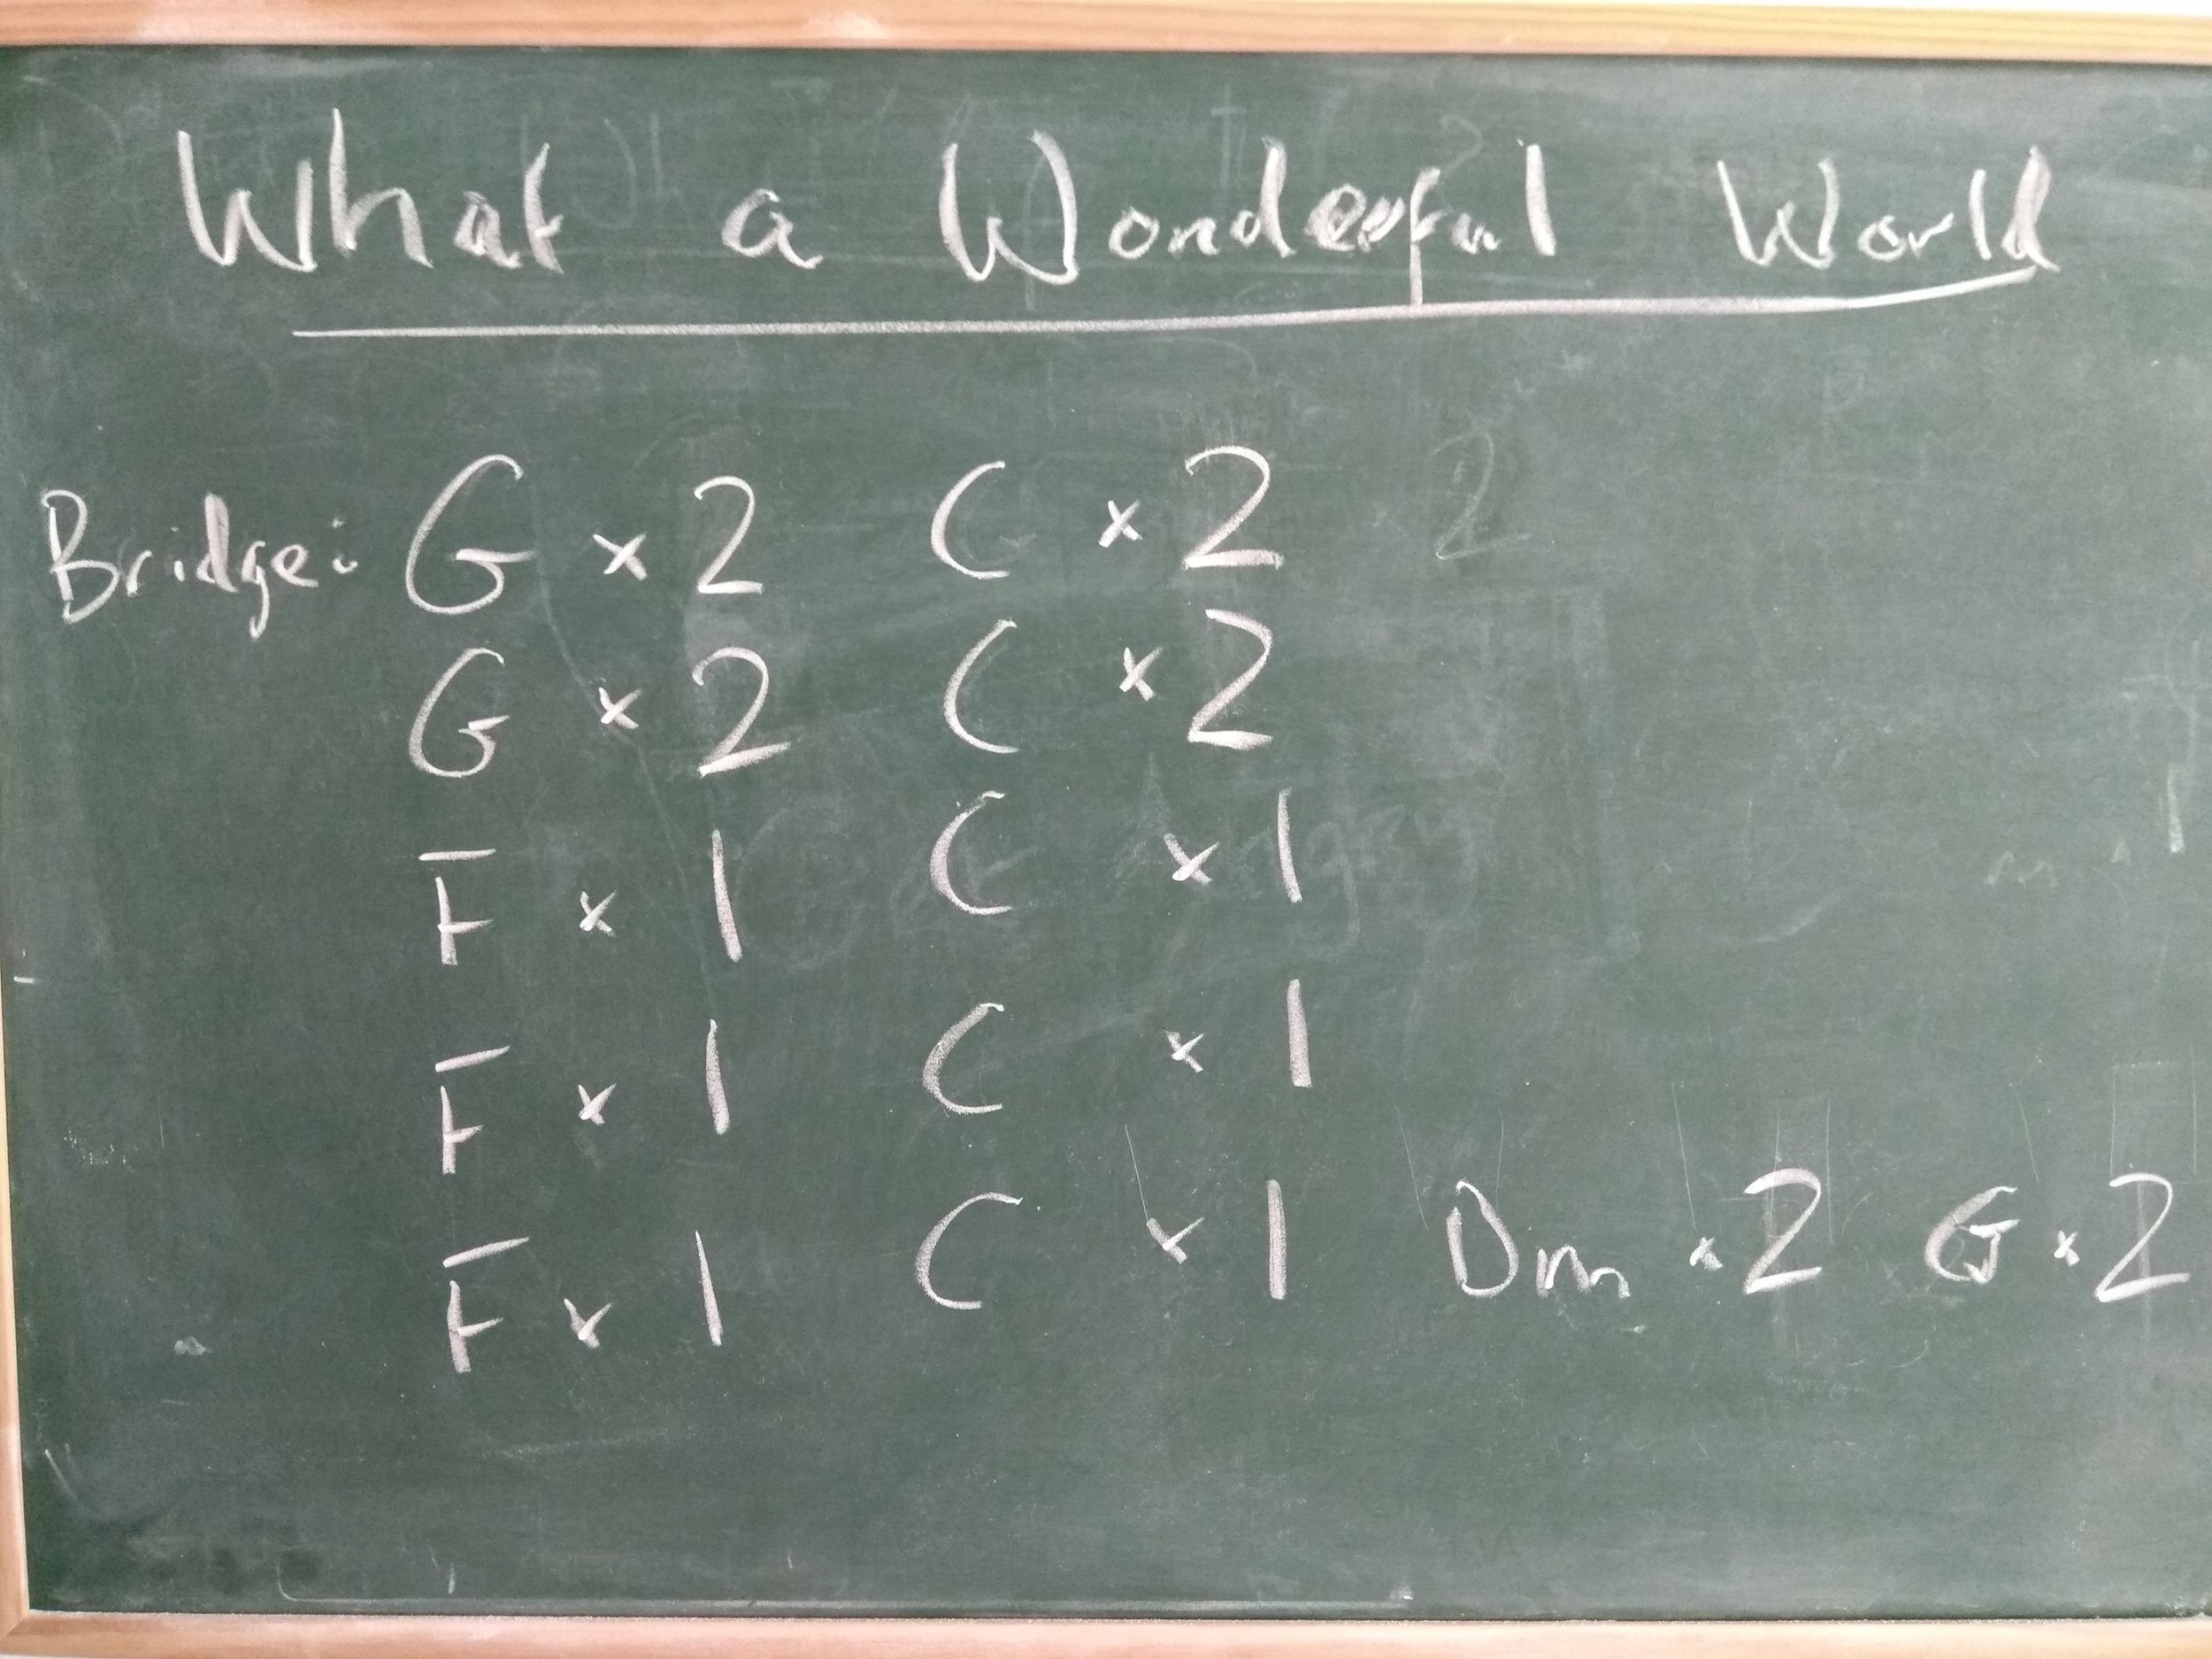 What a Wonderful World
Bridge: G x 2 C x 2
G x 2 C x 2
F x 1 C x 1
F x 1 C x 1
F x 1 C x 1 Dm x 2 G x 2